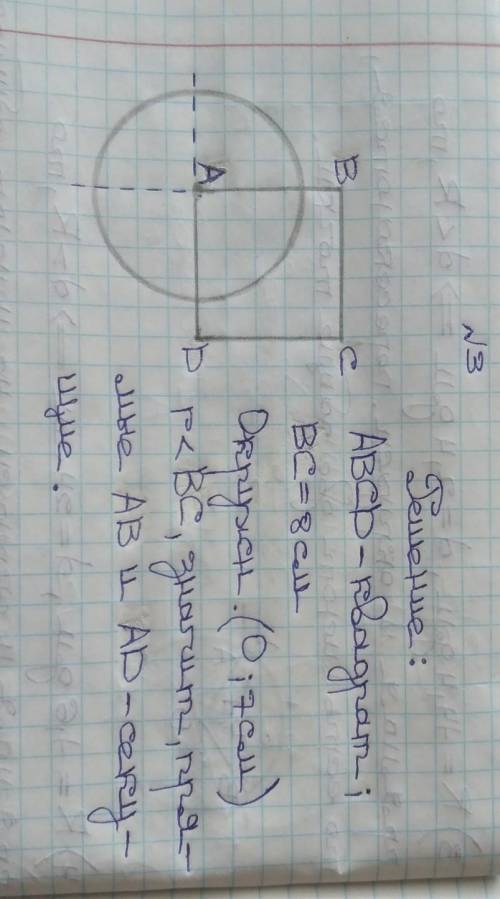 №3
Решение:
B C
A D
ABCD - квадрат;
BC = 8 см
Окружн. (O; 7 см)
r < BC, значит, пря-
мые AB и AD - секу-
щие.